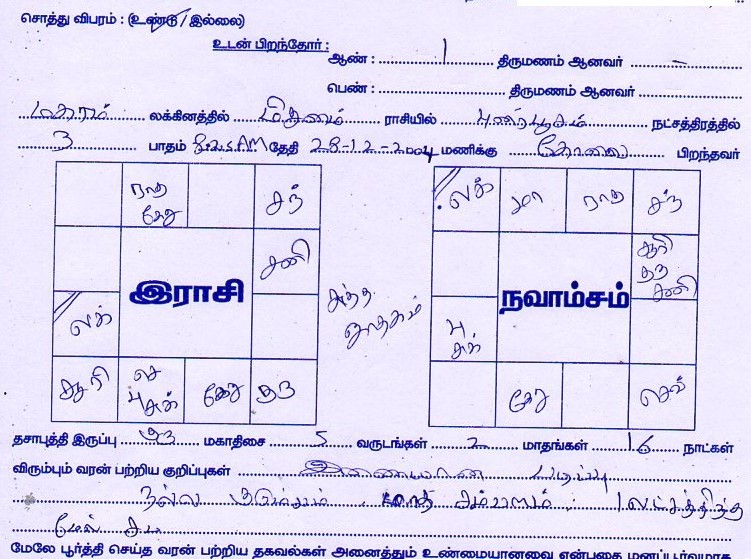 சொத்து விபரம் : (உண்டு/இல்லை)
உடன் பிறந்தோர் :
ஆண் : 1 திருமணம் ஆனவர் –
பெண் : திருமணம் ஆனவர்
மகரம் லக்கினத்தில் மிதுனம் ராசியில் புனர்பூசம் நட்சத்திரத்தில்
3 பாதம் 8.25AM தேதி 28-12-2004 மணிக்கு பிறந்தவர்
சந் லக் மா ராகு சந்
கேது
சனி சூரி
குரு
சனி
இராசி சுத்த ஜாதகம் நவாம்சம்
லக் பு
சுக்
சூரி செ கேது குரு கேது செவ்
பு சுக்
தசாபுத்தி இருப்பு குரு மகாதிசை 5 வருடங்கள் 2 மாதங்கள் 16 நாட்கள்
விரும்பும் வரன் பற்றிய குறிப்புகள் இணையான படிப்பு
நல்ல குடும்பம் மாத சம்பளம் : 1 லட்சத்திற்கு
மேலே பூர்த்தி செய்த வரன் பற்றிய தகவல்கள் அனைத்தும் உண்மையானவை என்பதை மனப்பூர்வமாக